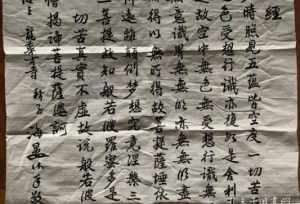 經
時照見五蘊皆空度一切苦
色受想行識亦復如是舍利
故空中無色無受想行識無
無意識界無無明亦無無明盡
得以無所得故菩提薩埵依
遠離顛倒夢想究竟涅槃三
菩提故知般若波羅蜜多是
切苦真實不虛故說般若波
僧揭諦菩提薩婆訶